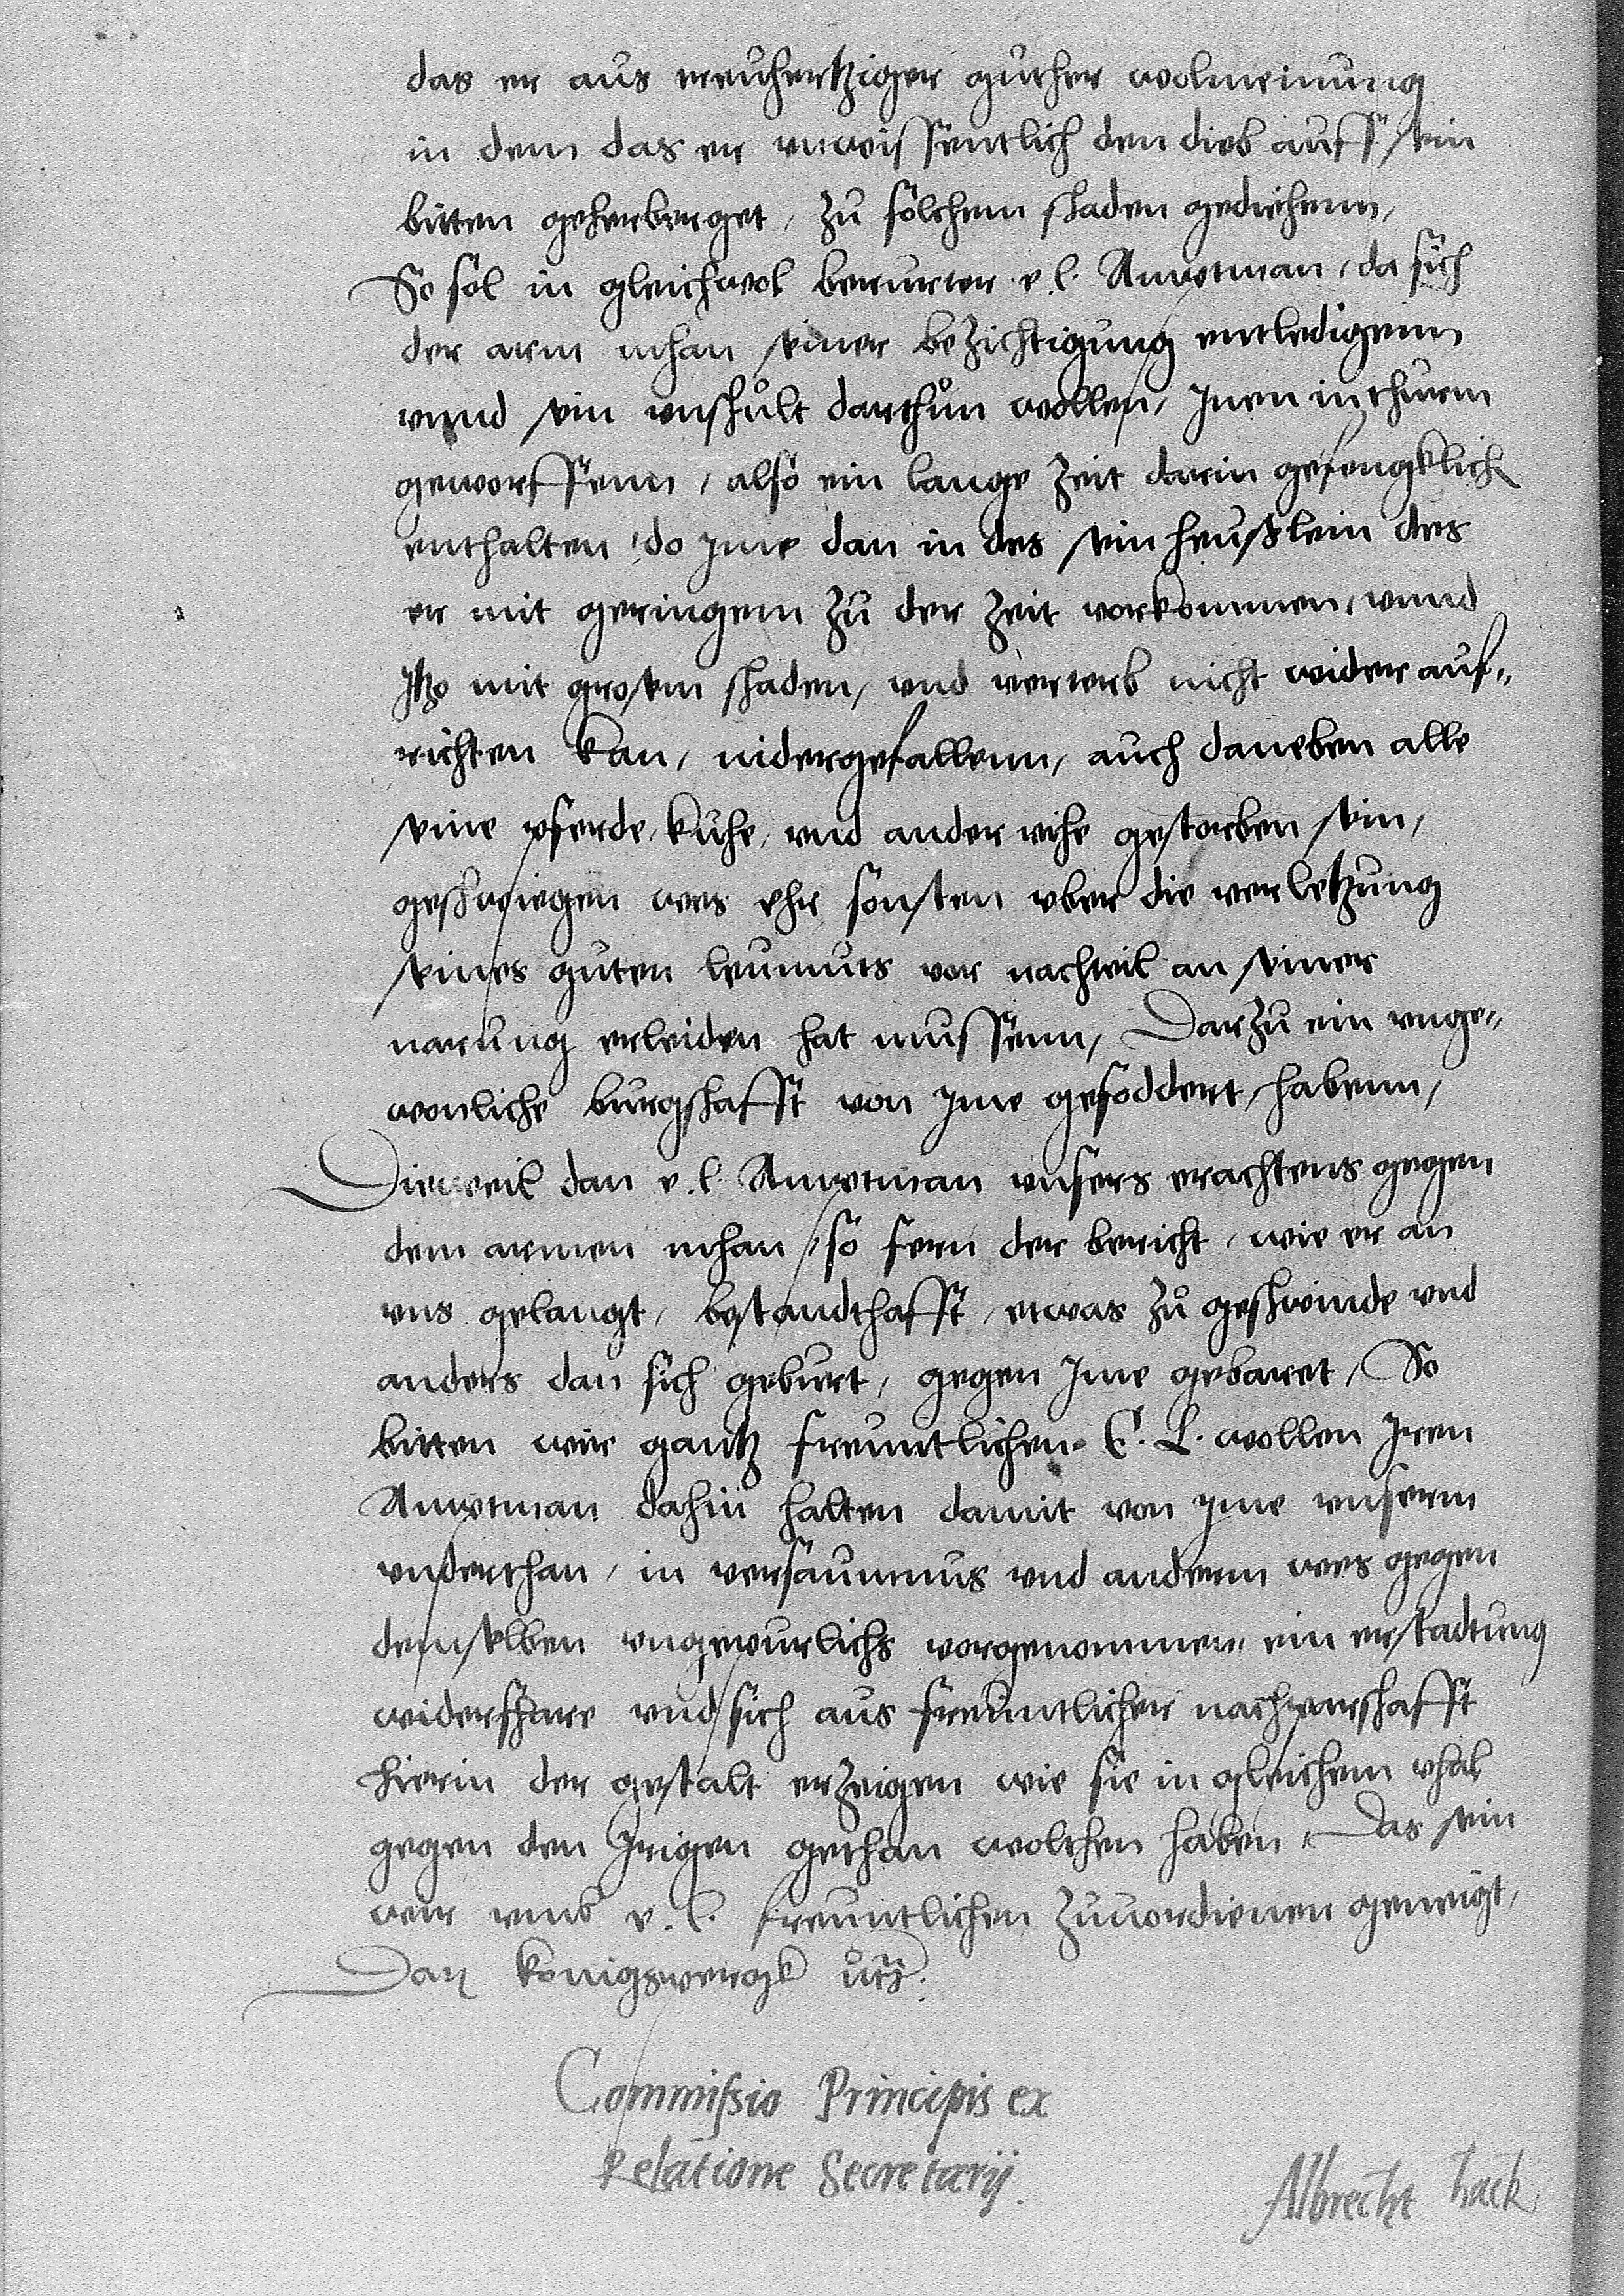 das er aus treuhertziger guther wolmeinung
in dem das er vnwissentlich den dieb auff sein
bitten geherberget, zu solchem schaden gediehenn,
So sol in gleichwol berurter e. l. Amptman, da sich
der arm mhan seiner bezichtigung entledigenn
vnnd sein vnschult darthun wollen, Jnen in thurm
geworffenn, also ein lange zeit darin gefengklich
enthalten, do jme dan in des sein heußlein des
er mit geringem zu der zeit vorkommen, vnnd
Jtzo mit grosem schaden, vnd verterb nicht wider auf„
richten kan, nidergefallenn, auch daneben alle
seine pferde, kuhe, vnd ander vihe gestorben sein,
geschwiegen wes ehr sonsten vber die verletzung
seines guten leumuts vor nachteil an seiner
narung erleiden hat mussenn, Darzu ein vnge„
wonliche burgschafft von jme gefoddert habenn,
Dieweil dan e. l. Amptman vnsers erachtens gegen
dem armen mhan, so fern der bericht, wie er an
vns gelangt, bestandthafft, etwas zu geschwinde vnd
anders dan sich geburt, gegen Jme gebaret, So
bitten wir gantz freuntlichen E. L. wollen Jren
Amptman dahin halten damit von jme vnserm
vnderthan, in versaumnus vnd anderm wes gegen
demselben vngepurlichs vorgenommen, ein erstadtung
widerfhare vnd sich aus freuntlicher nachparschafft
hierin der gestalt erzeigen wie sie in gleichem vhal
gegen den Jrigen gethan wolthen haben, Das sein
wir vmb e. l. freuntlichen zuuordienen geneigt,
Dat konigspergk ut s.
Commissio Principis ex
Relatione Secretarij.
Albrecht hack